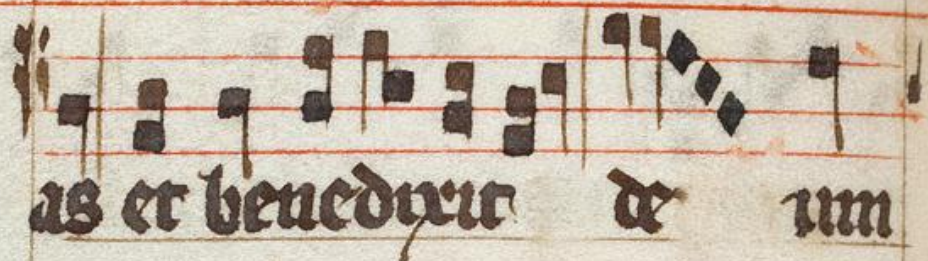 as et benedixit de um